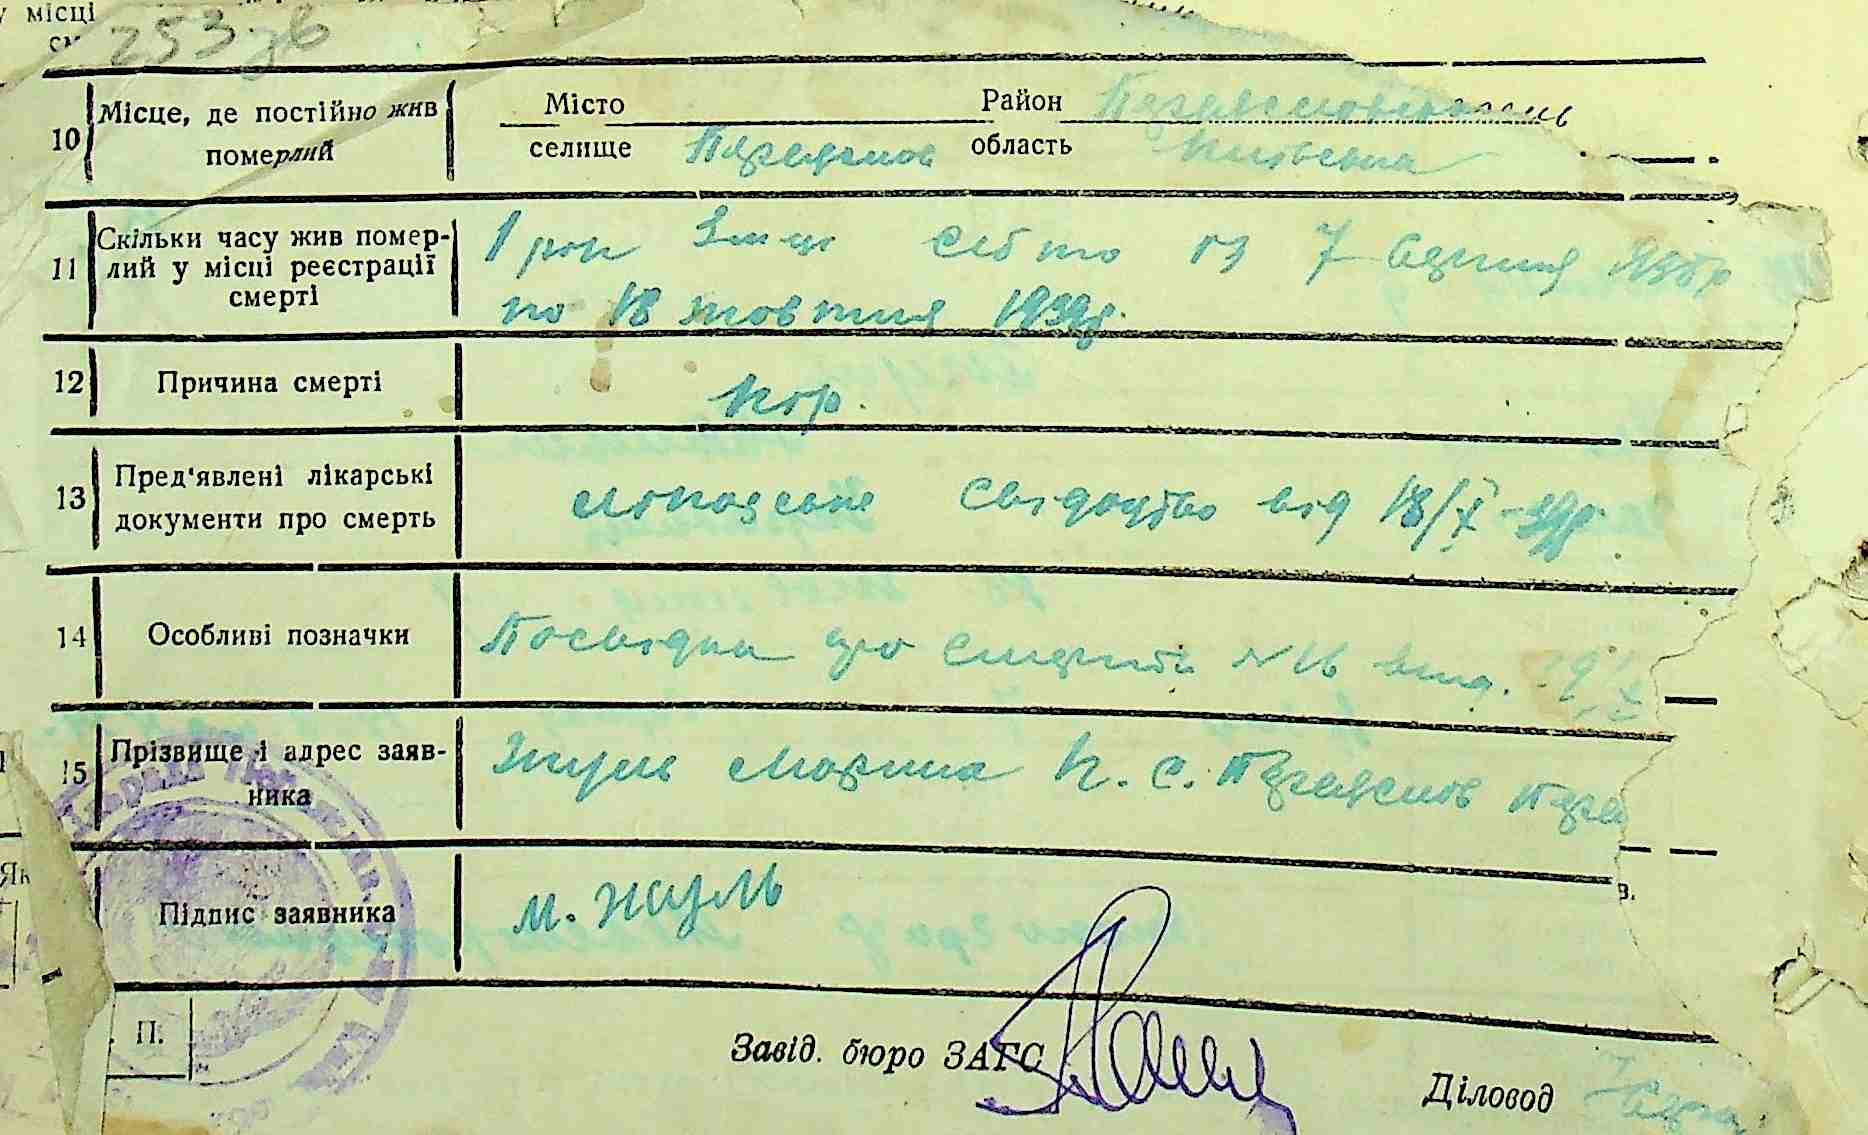 у місці
253зв
10 Місце, де постійно жив померлий Місто Район
селище Переяслов область Київська
11 Скільки часу жив померлий у місці реєстрації смерті 1 рік 3 м-ці себто із 7 серпня
по 18 жовтня
12 Причина смерті Кір.
13 Пред'явлені лікарські документи про смерть свідоцтво від 18/X
14 Особливі позначки Посвідка про смерть №16 вид. 19
15 Прізвище і адрес заявника Жуль Марина К. С. Переяслов
Підпис заявника М. Жуль
в.
Як
П.
Завід. бюро ЗАГС
Діловод